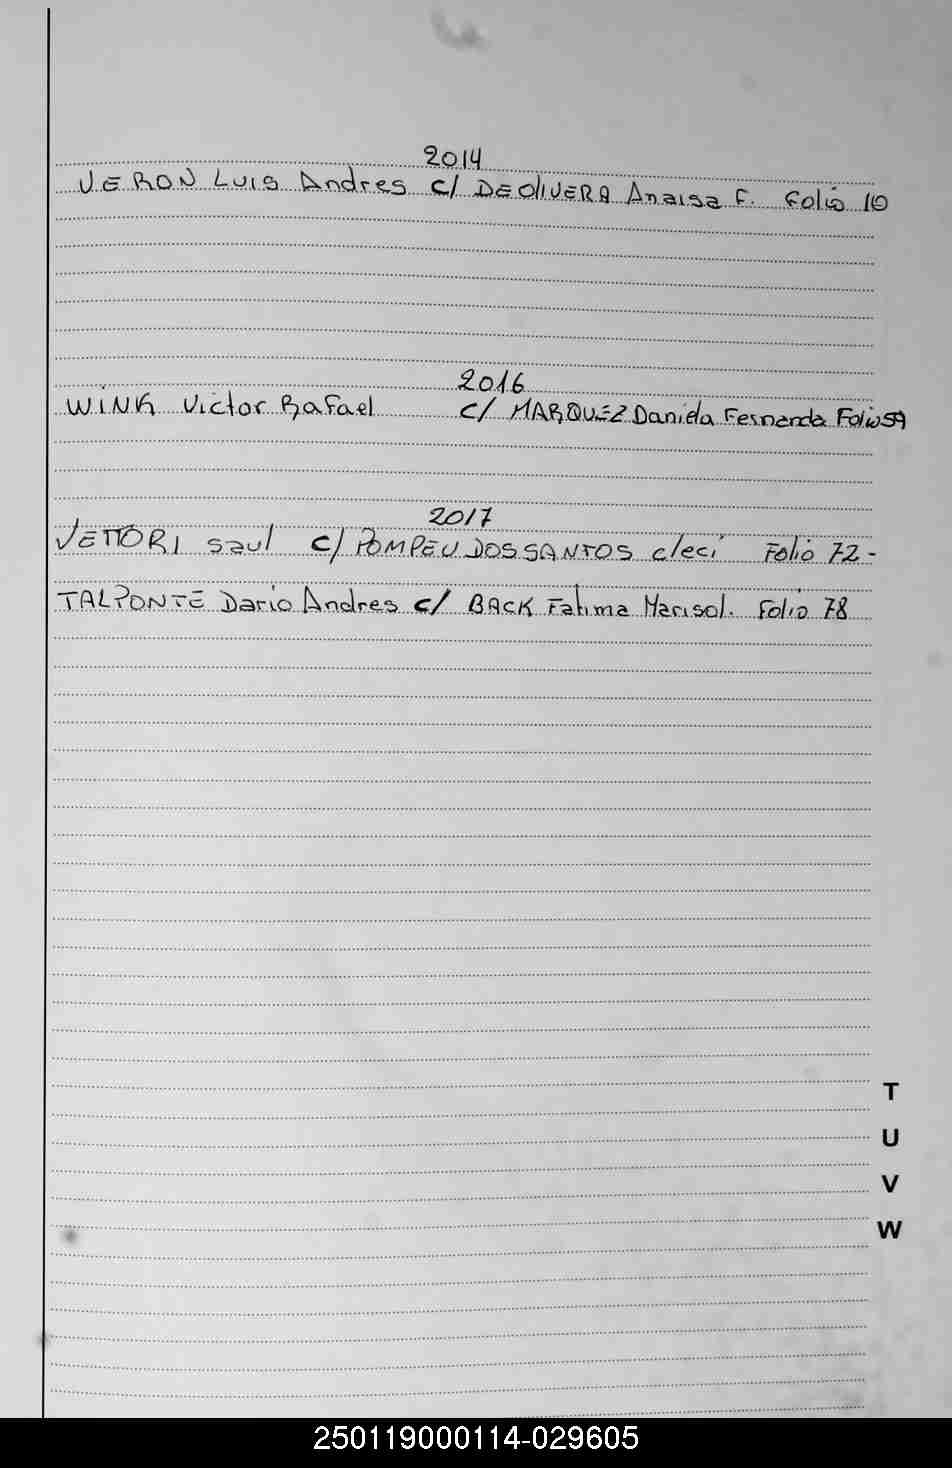 2014
VERON LUIS Andres c/ DEOLIVERA Anaisa F. Folio 10
2016
WINK Victor Rafael c/ MARQUEZ Daniela Fernanda Folio 59
2017
VETTORI saul c/ POMPEU DOSSANTOS cleci Folio 72-
TALPONTE Dario Andres c/ BACK Fatima Marisol. Folio 78
T
U
V
W
250119000114-029605